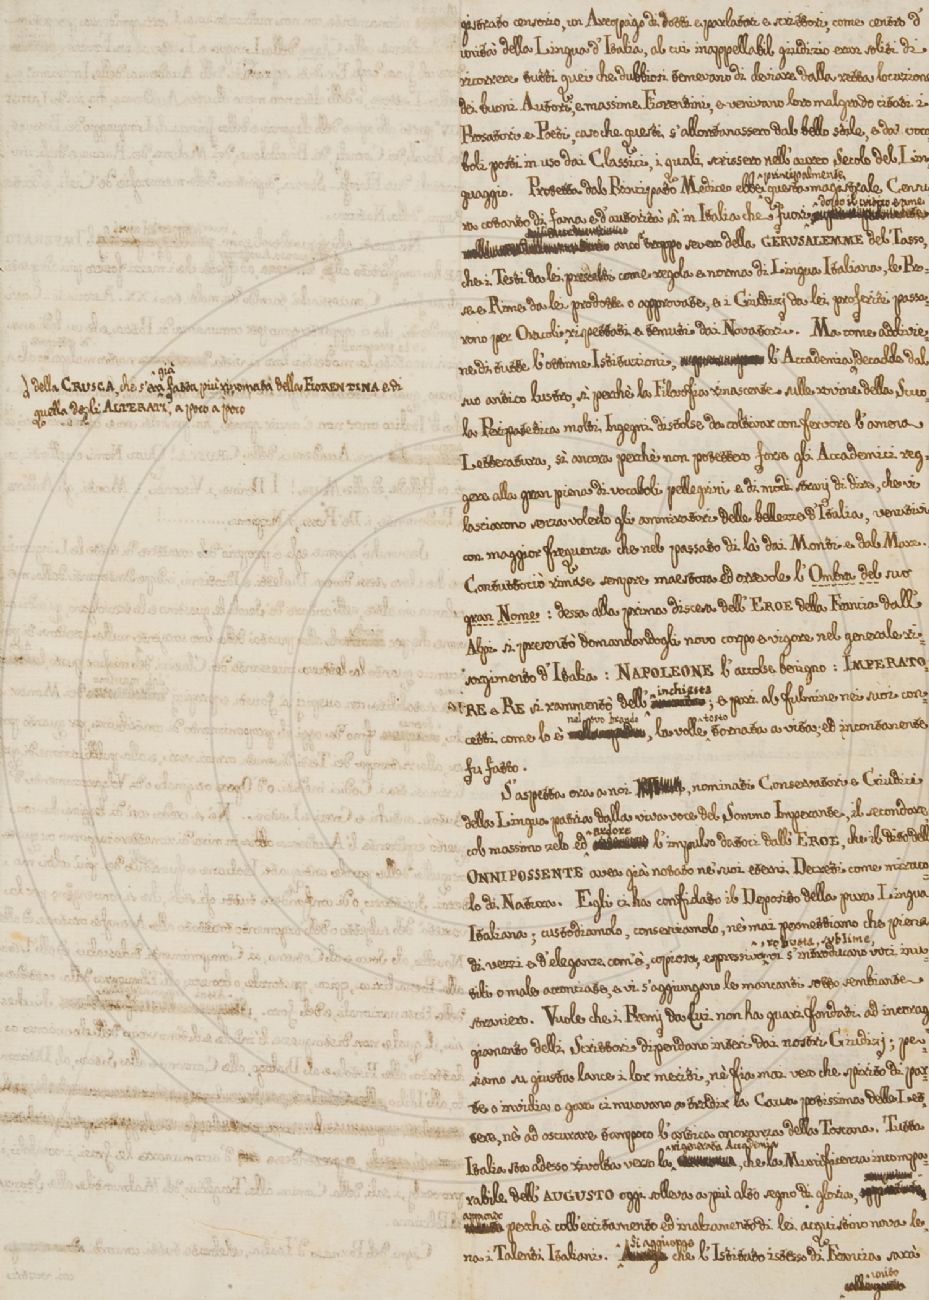 gistrato censorio, un Areopàgo di dotti e parlatori e scrittori, come centro d'
unità della Lingua d'Italia, al cui inappellabil giudizio eran soliti di
ricorrere tutti quei che dubbiosi temevano di deviare dalla retta locuzione
dei buoni Autori, e massime Fiorentini, e venivano loro malgrado citati i
Prosatori e Poeti, caso che questi s'allontanassero dal bello stile, e dai voca
boli posti in uso dai Classici, i quali scrissero nell'aureo Secolo del Lin
guaggio. Protetta dal Principato Mediceo ebbe principalmente questa magistrale Censu
ra cotanto di fama e d'autorità sì in Italia che fuori
anco troppo severo della GERUSALEMME del Tasso,
che i Testi da lei prescelti come regola e norma di Lingua Italiana, le Pro
se e Rime da lei prodotte o approvate, e i Giudizj da lei proferiti passa-
rono per Oracoli, rispettati e temuti dai Novatori. Ma come addivie
ne di tutte l'ottime Istituzioni, l'Accademia decadde dal
) della CRUSCA, che s'era già fatta più rinomata della FIORENTINA e di
quella degli ALTERATI, a poco a poco
suo antico lustro, sì perchè la Filosofia rinascente sulle rovine della Scuo
la Peripatetica molti Ingegni distolse da coltivar con fervore l'amena
Letteratura, sì ancora perchè non potettero forse gli Accademici reg-
gere alla gran piena di vocaboli pellegrini e di modi stranj di dire, che vi
lasciarono senza volerlo gli ammiratori delle bellezze d'Italia, venutivi
con maggior frequenza che nel passato di là dai Monti e dal Mare.
Contuttociò rimase sempre maestosa ed orrevole l'Ombra del suo
gran Nome: dessa alla prima discesa dell'EROE della Francia dall'
Alpi si presentò domandandogli novo corpo e vigore nel generale ri-
sorgimento d'Italia: NAPOLEONE l'accolse benigno: IMPERATO-
RE e RE si rammentò dell'inchiesta; e pari al fulmine nei suoi con-
cetti come lo è nel suo brando, la volle tosto tornata a vita; ed incontanente
fu fatto.
S'aspetta ora a noi, nominati Conservatori e Giudici
della Lingua patria dalla viva voce del Sommo Imperante, il secondare
col massimo zelo ed ardore l'impulso datoci dall'EROE, che il dito dell'
ONNIPOSSENTE avea già notato nei suoi eterni Decreti come miraco
lo di Natura. Egli ci ha confidato il Deposito della pura Lingua
Italiana; custodiamolo, conserviamolo, nè mai permettiamo che piena
di vezzi e d'eleganze com'è, copiosa, espressiva, robusta, sublime, vi s'introducano voci inu-
tili o male acconciate, e vi s'aggiungano le mancanti sotto sembiante
straniero. Vuole che i Premj da Lui non ha guari fondati ad incorag
giamento delli Scrittori dipendano interi dai nostri Giudizj; pe-
siamo su giusta lance i lor meriti, nè fia mai vero che spirito di par
te o invidia o gara ci muovano a tradir la Causa potissima delle Let-
tere, nè ad oscurare tampoco l'antica onoranza della Toscana. Tutta
Italia sta adesso rivolta verso la rigenerata Accademia, che la Munificenza incompa-
rabile dell'AUGUSTO oggi solleva a più alto segno di gloria,
appunto perchè coll'eccitamento ed inalzamento di lei acquistino nova le
na i Talenti Italiani. Si aggiunga che l'Istituto istesso di Francia sarà
unito